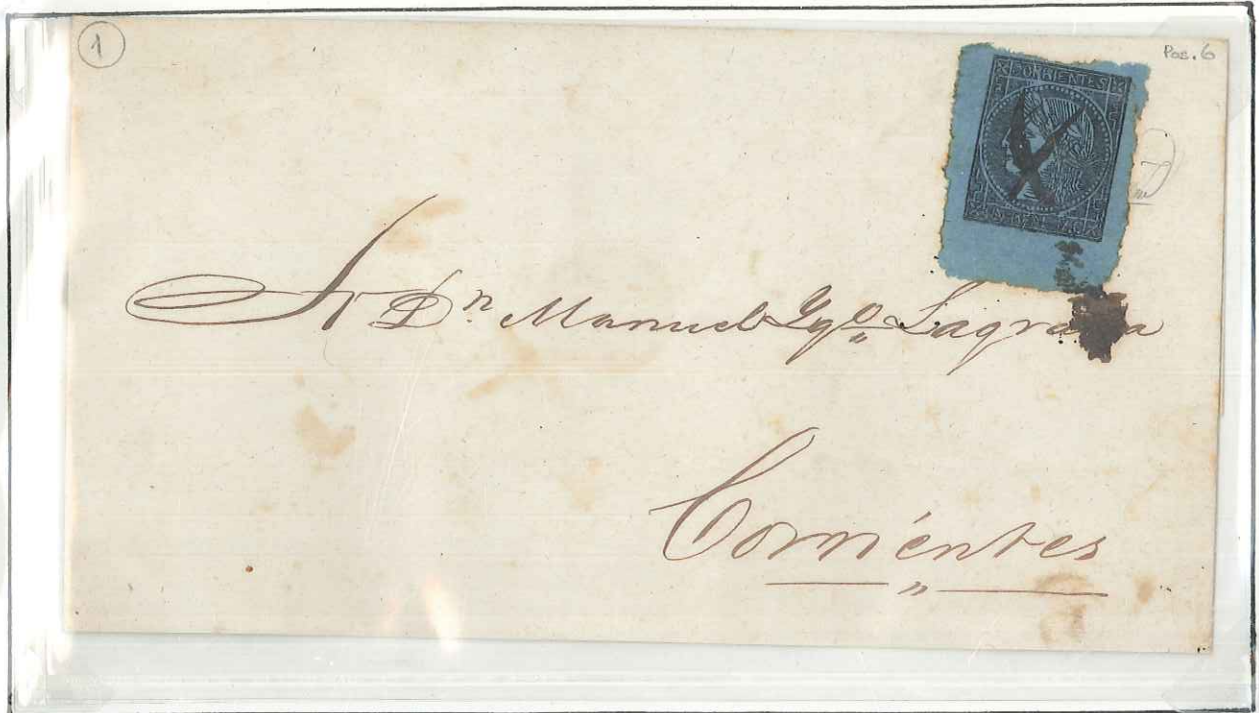 1
Pos. 6
CORRIENTES
UN REAL M.C.
Sr Dn Manuel Ygo. Lagraña
Corrientes